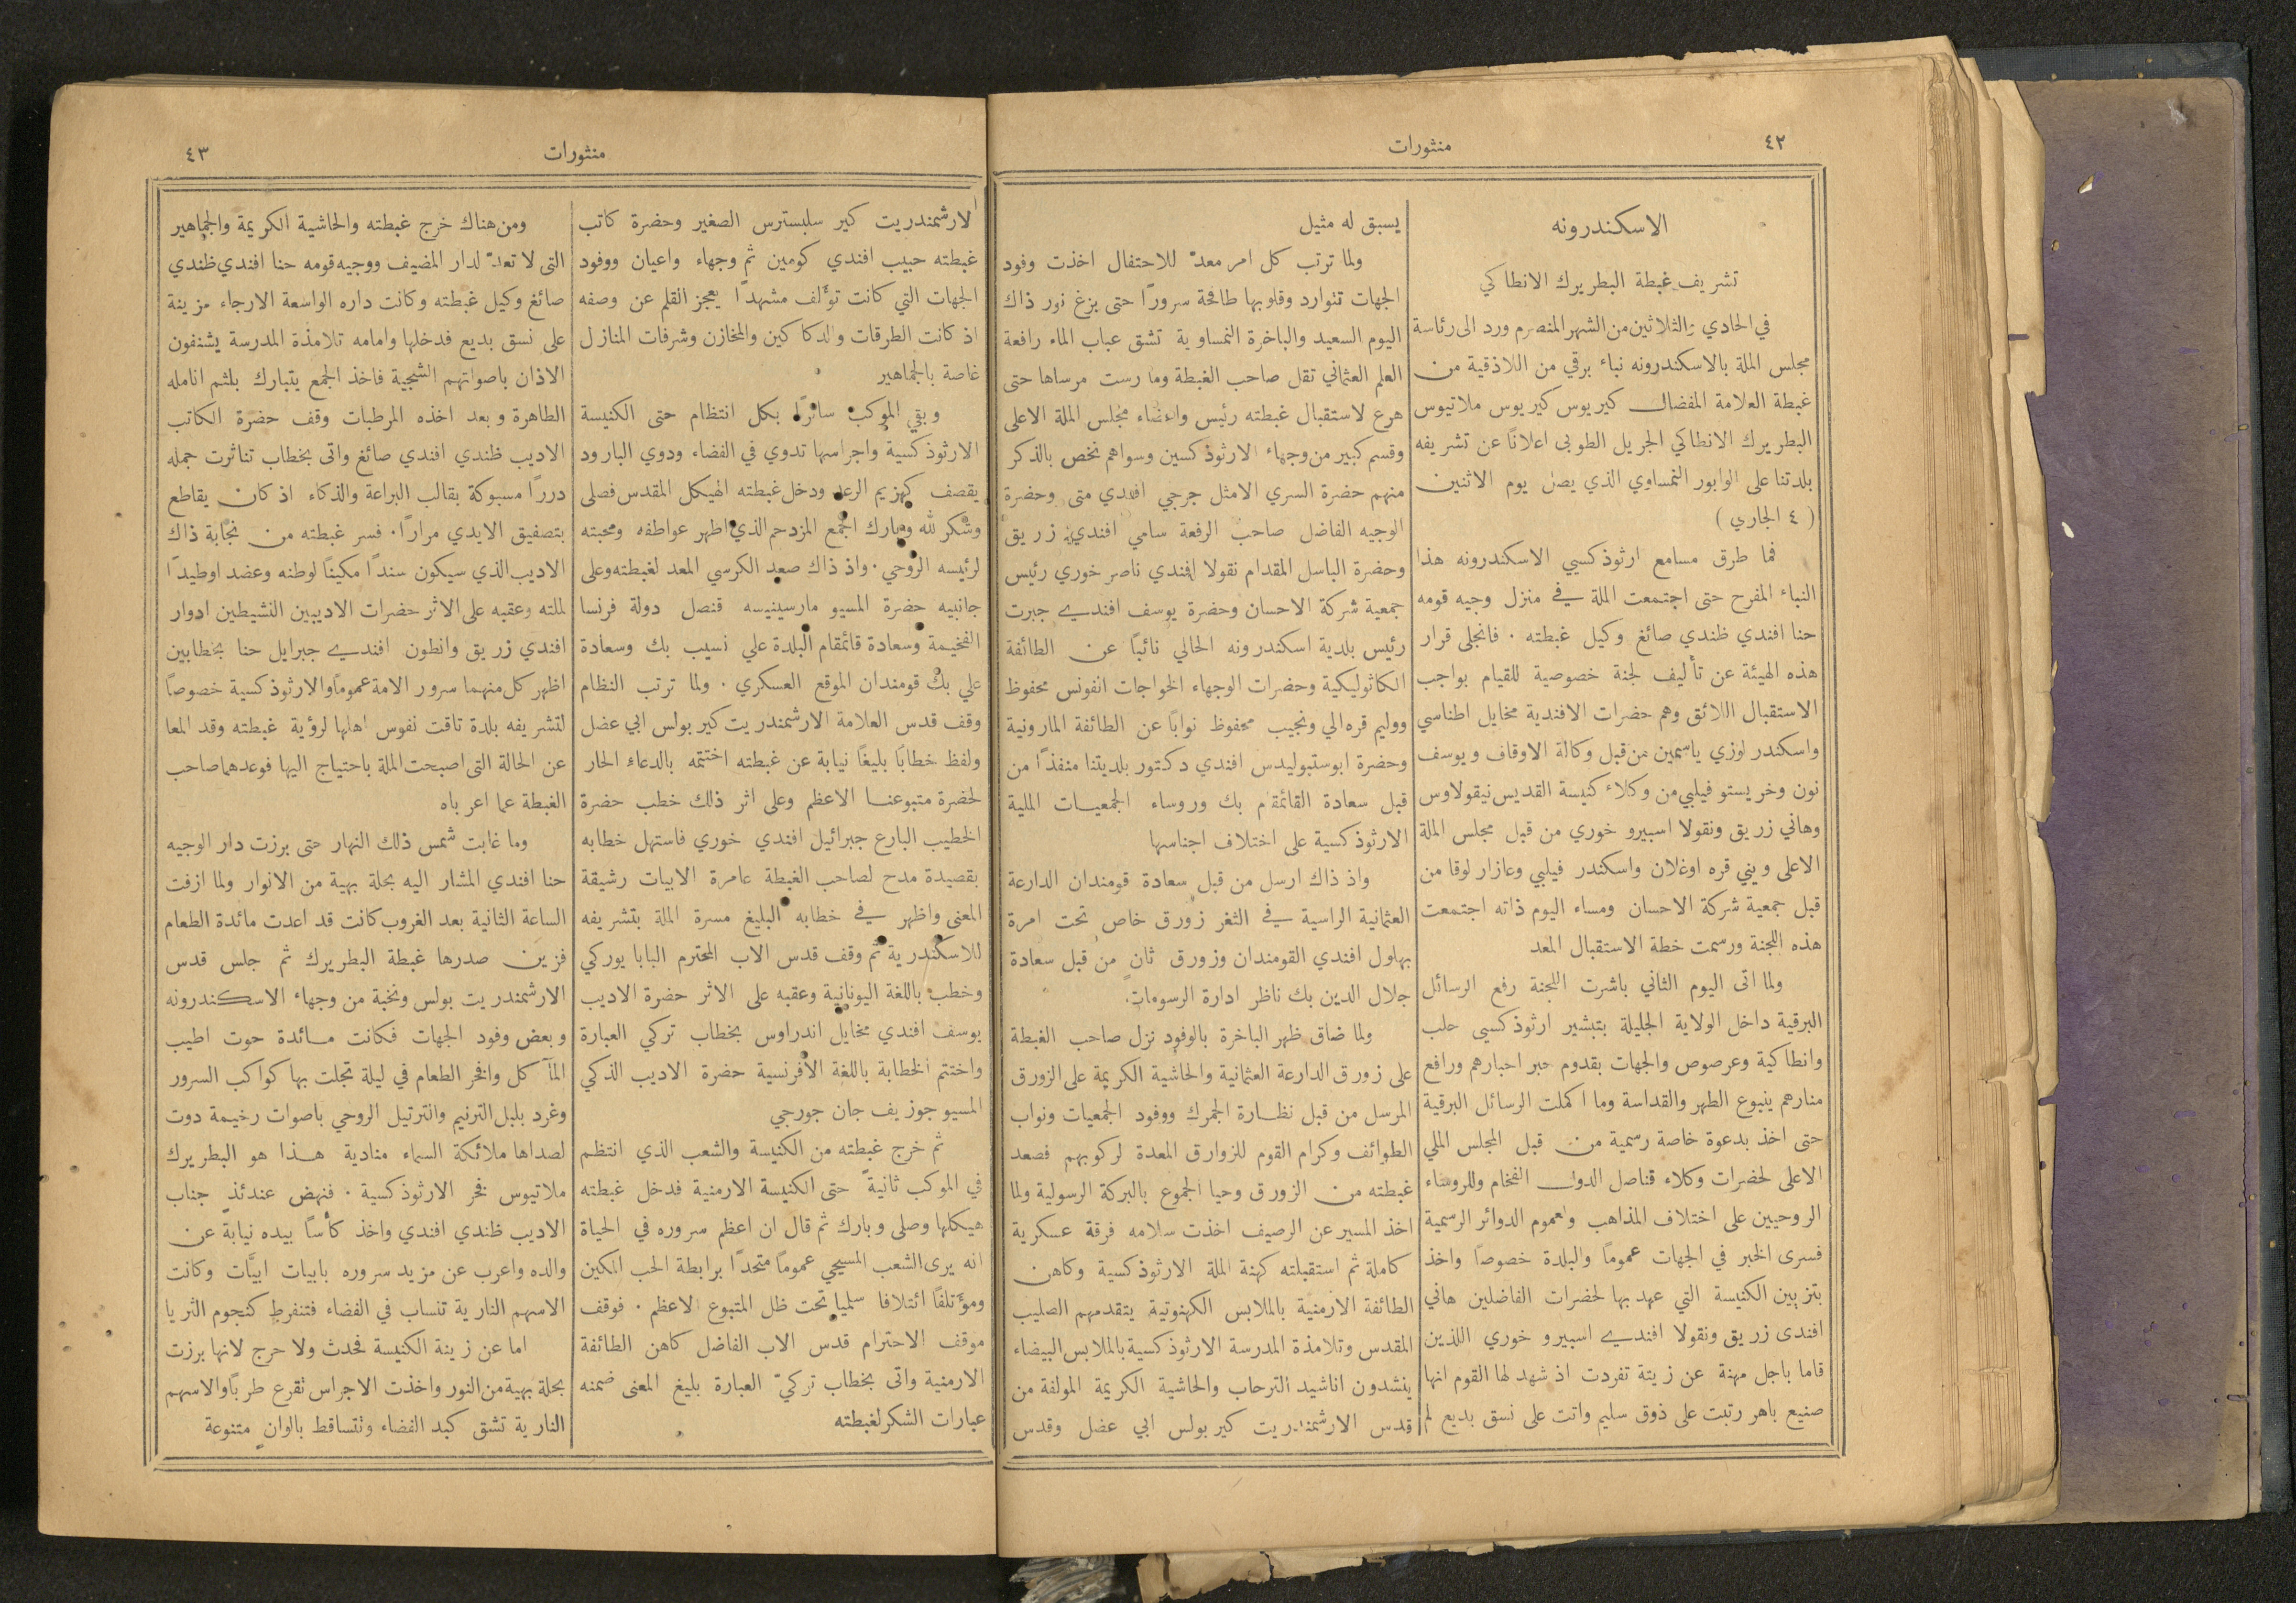 ٤٢
منثورات
الاسكندرونه
تشريف غبطة البطريرك الانطاكي
في الحادي والثلاثين من الشهر المنصرم ورد الى رئاسة
مجلس الملة بالاسكندرونه نباء برقي من اللاذقية من
غبطة العلامة المفضال كيريوس كيريوس ملاتيوس
البطريرك الانطاكي الجزيل الطوبى اعلانًا عن تشريفه
بلدتنا على الوابور النمساوي الذي يصل يوم الاثنين
( ٤ الجاري )
فما طرق مسامع ارثوذكسيي الاسكندرونه هذا
النباء المفرح حتى اجتمعت الملة في منزل وجيه قومه
حنا افندي ظندي صائغ وكيل غبطته . فانجلى قرار
هذه الهيئة عن تأليف لجنة خصوصية للقيام بواجب
الاستقبال اللائق وهم حضرات الافندية مخايل اطناسي
واسكندر لوزي ياسمين من قبل وكالة الاوقاف ويوسف
نون وخريستو فيلبي من وكلاء كنيسة القديس نيقولاوس
وهاني زريق ونقولا اسبيرو خوري من قبل مجلس الملة
الاعلى ويني قره اوغلان واسكندر فيلبي وعازار لوقا من
قبل جمعية شركة الاحسان ومساء اليوم ذاته اجتمعت
هذه اللجنة ورسمت خطة الاستقبال المعد
ولما اتى اليوم الثاني باشرت اللجنة رفع الرسائل
البرقية داخل الولاية الجليلة بتبشير ارثوذكسيي حلب
وانطاكية وعرصوص والجهات بقدوم حبر احبارهم ورافع
منارهم ينبوع الطهر والقداسة وما اكملت الرسائل البرقية
حتى اخذ بدعوة خاصة رسمية من قبل المجلس الملي
الاعلى لحضرات وكلاء قناصل الدول الفخام وللروساء
الروحيين على اختلاف المذاهب ولعموم الدوائر الرسمية
فسرى الخبر في الجهات عمومًا والبلدة خصوصًا واخذ
بتزيين الكنيسة التي عهد بها لحضرات الفاضلين هاني
افندى زريق ونقولا افندي اسبيرو خوري اللذين
قاما باجل مهنة عن زينة تفردت اذ شهد لها القوم انها
صنيع باهر رتبت على ذوق سليم واتت على نسق بديع لم
يسبق له مثيل
ولما ترتب كل امر معدّ للاحتفال اخذت وفود
الجهات تتوارد وقلوبها طافحة سرورًا حتى بزغ نور ذاك
اليوم السعيد والباخرة النمساوية تشق عباب الماء رافعة
العلم العثماني تقل صاحب الغبطة وما رست مرساها حتى
هرع لاستقبال غبطته رئيس واعضاء مجلس الملة الاعلى
وقسم كبير من وجهاء الارثوذكسين وسواهم نخص بالذكر
منهم حضرة السري الامثل جرجي افندي متى وحضرة
الوجيه الفاضل صاحب الرفعة سامي افندي زريق
وحضرة الباسل المقدام نقولا افندي ناصر خوري رئيس
جمعية شركة الاحسان وحضرة يوسف افندي جبرت
رئيس بلدية اسكندرونه الحالي نائبًا عن الطائفة
الكاثوليكية وحضرات الوجهاء الخواجات انفونس محفوظ
ووليم قره الي ونجيب محفوظ نوابًا عن الطائفة المارونية
وحضرة ابوستبوليدس افندي دكتور بلديتنا منفذًا من
قبل سعادة القائمقام بك وروساء الجمعيات الملية
الارثوذكسية على اختلاف اجناسها
واذ ذاك ارسل من قبل سعادة قومندان الدارعة
العثمانية الراسية في الثغر زورق خاص تحت امرة
بهلول افندي القومندان وزورق ثانٍ من قبل سعادة
جلال الدين بك ناظر ادارة الرسومات
ولما ضاق ظهر الباخرة بالوفود نزل صاحب الغبطة
على زورق الدارعة العثمانية والحاشية الكريمة على الزورق
المرسل من قبل نظارة الجمرك ووفود الجمعيات ونواب
الطوائف وكرام القوم للزوارق المعدة لركوبهم فصعد
غبطته من الزورق وحيا الجموع بالبركة الرسولية ولما
اخذ المسير عن الرصيف اخذت سلامه فرقة عسكرية
كاملة ثم استقبلته كهنة الملة الارثوذكسية وكاهن
الطائفة الارمنية بالملابس الكهنوتية يتقدمهم الصليب
المقدس وتلامذة المدرسة الارثوذكسية بالملابس البيضاء
ينشدون اناشيد الترحاب والحاشية الكريمة المولفة من
قدس الارشمندريت كير بولس ابي عضل وقدس
منثورات
٤٣
الارشمندريت كير سلبسترس الصغير وحضرة كاتب
غبطته حبيب افندي كومين ثم وجهاء واعيان ووفود
الجهات التي كانت تؤلف مشهدًا يعجز القلم عن وصفه
اذ كانت الطرقات والدكاكين والمخازن وشرفات المنازل
غاصة بالجماهير
وبقي الموكب سائرًا بكل انتظام حتى الكنيسة
الارثوذكسية واجراسها تدوي في الفضاء ودوي البارود
يقصف كهزيم الرعد ودخل غبطته الهيكل المقدس فصلى
وشكر لله وبارك الجمع المزدحم الذي اظهر عواطفه ومحبته
لرئيسه الروحي . واذ ذاك صعد الكرسي المعد لغبطته وعلى
جانبيه حضرة المسيو مارسينيسه قنصل دولة فرنسا
الفخيمة وسعادة قائمقام البلدة علي نسيب بك وسعادة
علي بك قومندان الموقع العسكري . ولما ترتب النظام
وقف قدس العلامة الارشمندريت كير بولس ابي عضل
ولفظ خطابًا بليغًا نيابة عن غبطته اختتمه بالدعاء الحار
لحضرة متبوعنا الاعظم وعلى اثر ذلك خطب حضرة
الخطيب البارع جبرائيل افندي خوري فاستهل خطابه
بقصيدة مدح لصاحب الغبطة عامرة الابيات رشيقة
المعنى واظهر في خطابه البليغ مسرة الملة بتشريفه
للاسكندرية ثم وقف قدس الاب المحترم البابا يوركي
وخطب باللغة اليونانية وعقبه على الاثر حضرة الاديب
يوسف افندي مخايل اندراوس بخطاب تركي العبارة
واختتم الخطابة باللغة الافرنسية حضرة الاديب الذكي
المسيو جوزيف جان جورجي
ثم خرج غبطته من الكنيسة والشعب الذي انتظم
في الموكب ثانيةً حتى الكنيسة الارمنية فدخل غبطته
هيكلها وصلى وبارك ثم قال ان اعظم سروره في الحياة
انه يرى الشعب المسيحي عمومًا متحدًا برابطة الحب المكين
ومؤتلفًا ائتلافا سلميا تحت ظل المتبوع الاعظم . فوقف
موقف الاحترام قدس الاب الفاضل كاهن الطائفة
الارمنية واتى بخطاب تركيّ العبارة بليغ المعنى ضمنه
عبارات الشكر لغبطته
ومن هناك خرج غبطته والحاشية الكريمة والجماهير
التى لا تعدّ لدار المضيف ووجيه قومه حنا افندي ظندي
صائغ وكيل غبطته وكانت داره الواسعة الارجاء مزينة
على نسق بديع فدخلها وامامه تلامذة المدرسة يشنفون
الاذان باصواتهم الشجية فاخذ الجمع يتبارك بلثم انامله
الطاهرة وبعد اخذه المرطبات وقف حضرة الكاتب
الاديب ظندي افندي صائغ واتى بخطاب تناثرت جمله
دررًا مسبوكة بقالب البراعة والذكاء اذ كان يقاطع
بتصفيق الايدي مرارًا . فسر غبطته من نجابة ذاك
الاديب الذي سيكون سندًا مكينًا لوطنه وعضد اوطيدًا
لملته وعقبه على الاثر حضرات الاديبين النشيطين ادوار
افندي زريق وانطون افندي جبرايل حنا بخطابين
اظهر كل منهما سرور الامة عمومًا والارثوذكسية خصوصًا
لتشريفه بلدة تاقت نفوس اهلها لرؤية غبطته وقد المعا
عن الحالة التى اصبحت الملة باحتياج اليها فوعدهما صاحب
الغبطة عما اعرباه
وما غابت شمس ذلك النهار حتى برزت دار الوجيه
حنا افندي المشار اليه بحلة بهية من الانوار ولما ازفت
الساعة الثانية بعد الغروب كانت قد اعدت مائدة الطعام
فزين صدرها غبطة البطريرك ثم جلس قدس
الارشمندريت بولس ونخبة من وجهاء الاسكندرونه
وبعض وفود الجهات فكانت مائدة حوت اطيب
المآكل وافخر الطعام في ليلة تجلت بها كواكب السرور
وغرد بلبل الترنيم والترتيل الروحي باصوات رخيمة دوت
لصداها ملائكة السماء منادية هذا هو البطريرك
ملاتيوس فخر الارثوذكسية . فنهض عندئذٍ جناب
الاديب ظندي افندي واخذ كأسًا بيده نيابة عن
والده واعرب عن مزيد سروره بابيات ابيَّات وكانت
الاسهم النارية تنساب في الفضاء فتنفرط كنجوم الثريا
اما عن زينة الكنيسة فحدث ولا حرج لانها برزت
بحلة بهية من النور واخذت الاجراس تقرع طربًا والاسهم
النارية تشق كبد الفضاء وتتساقط بالوانٍ متنوعة